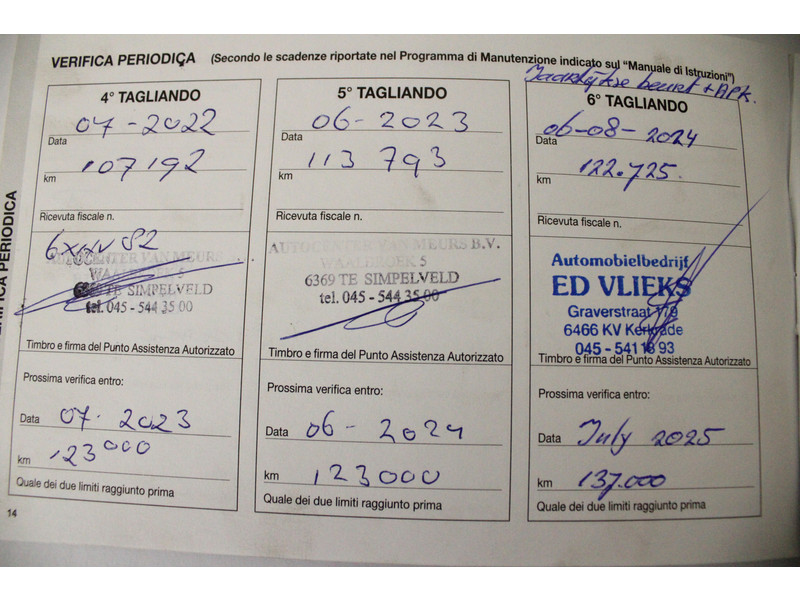 VERIFICA PERIODIÇA (Secondo le scadenze riportate nel Programma di Manutenzione indicato sul "Manuale di Istruzioni")
Jaarlijkse beurt + APK.
4° TAGLIANDO
07 - 2022
Data
107192
km
Ricevuta fiscale n.
AUTOCENTER VAN MEURS
WAALBROEK 5
TE SIMPELVELD
tel. 045 - 544 35 00
Timbro e firma del Punto Assistenza Autorizzato
Prossima verifica entro:
Data 07. 2023
km 123000
Quale dei due limiti raggiunto prima
5° TAGLIANDO
06 - 2023
Data
113 793
km
Ricevuta fiscale n.
AUTOCENTER VAN MEURS B.V.
WAALBROEK 5
6369 TE SIMPELVELD
tel. 045 - 544 35 00
Timbro e firma del Punto Assistenza Autorizzato
Prossima verifica entro:
Data 06 - 2024
km 123000
Quale dei due limiti raggiunto prima
6° TAGLIANDO
06-08- 2024
Data
122.725.
km
Ricevuta fiscale n.
Automobielbedrijf
ED VLIEKS
Graverstraat 179
6466 KV Kerkrade
045 - 541 18 93
Timbro e firma del Punto Assistenza Autorizzato
Prossima verifica entro:
Data July 2025
km 137.000
Quale dei due limiti raggiunto prima
14
VERIFICA PERIODICA